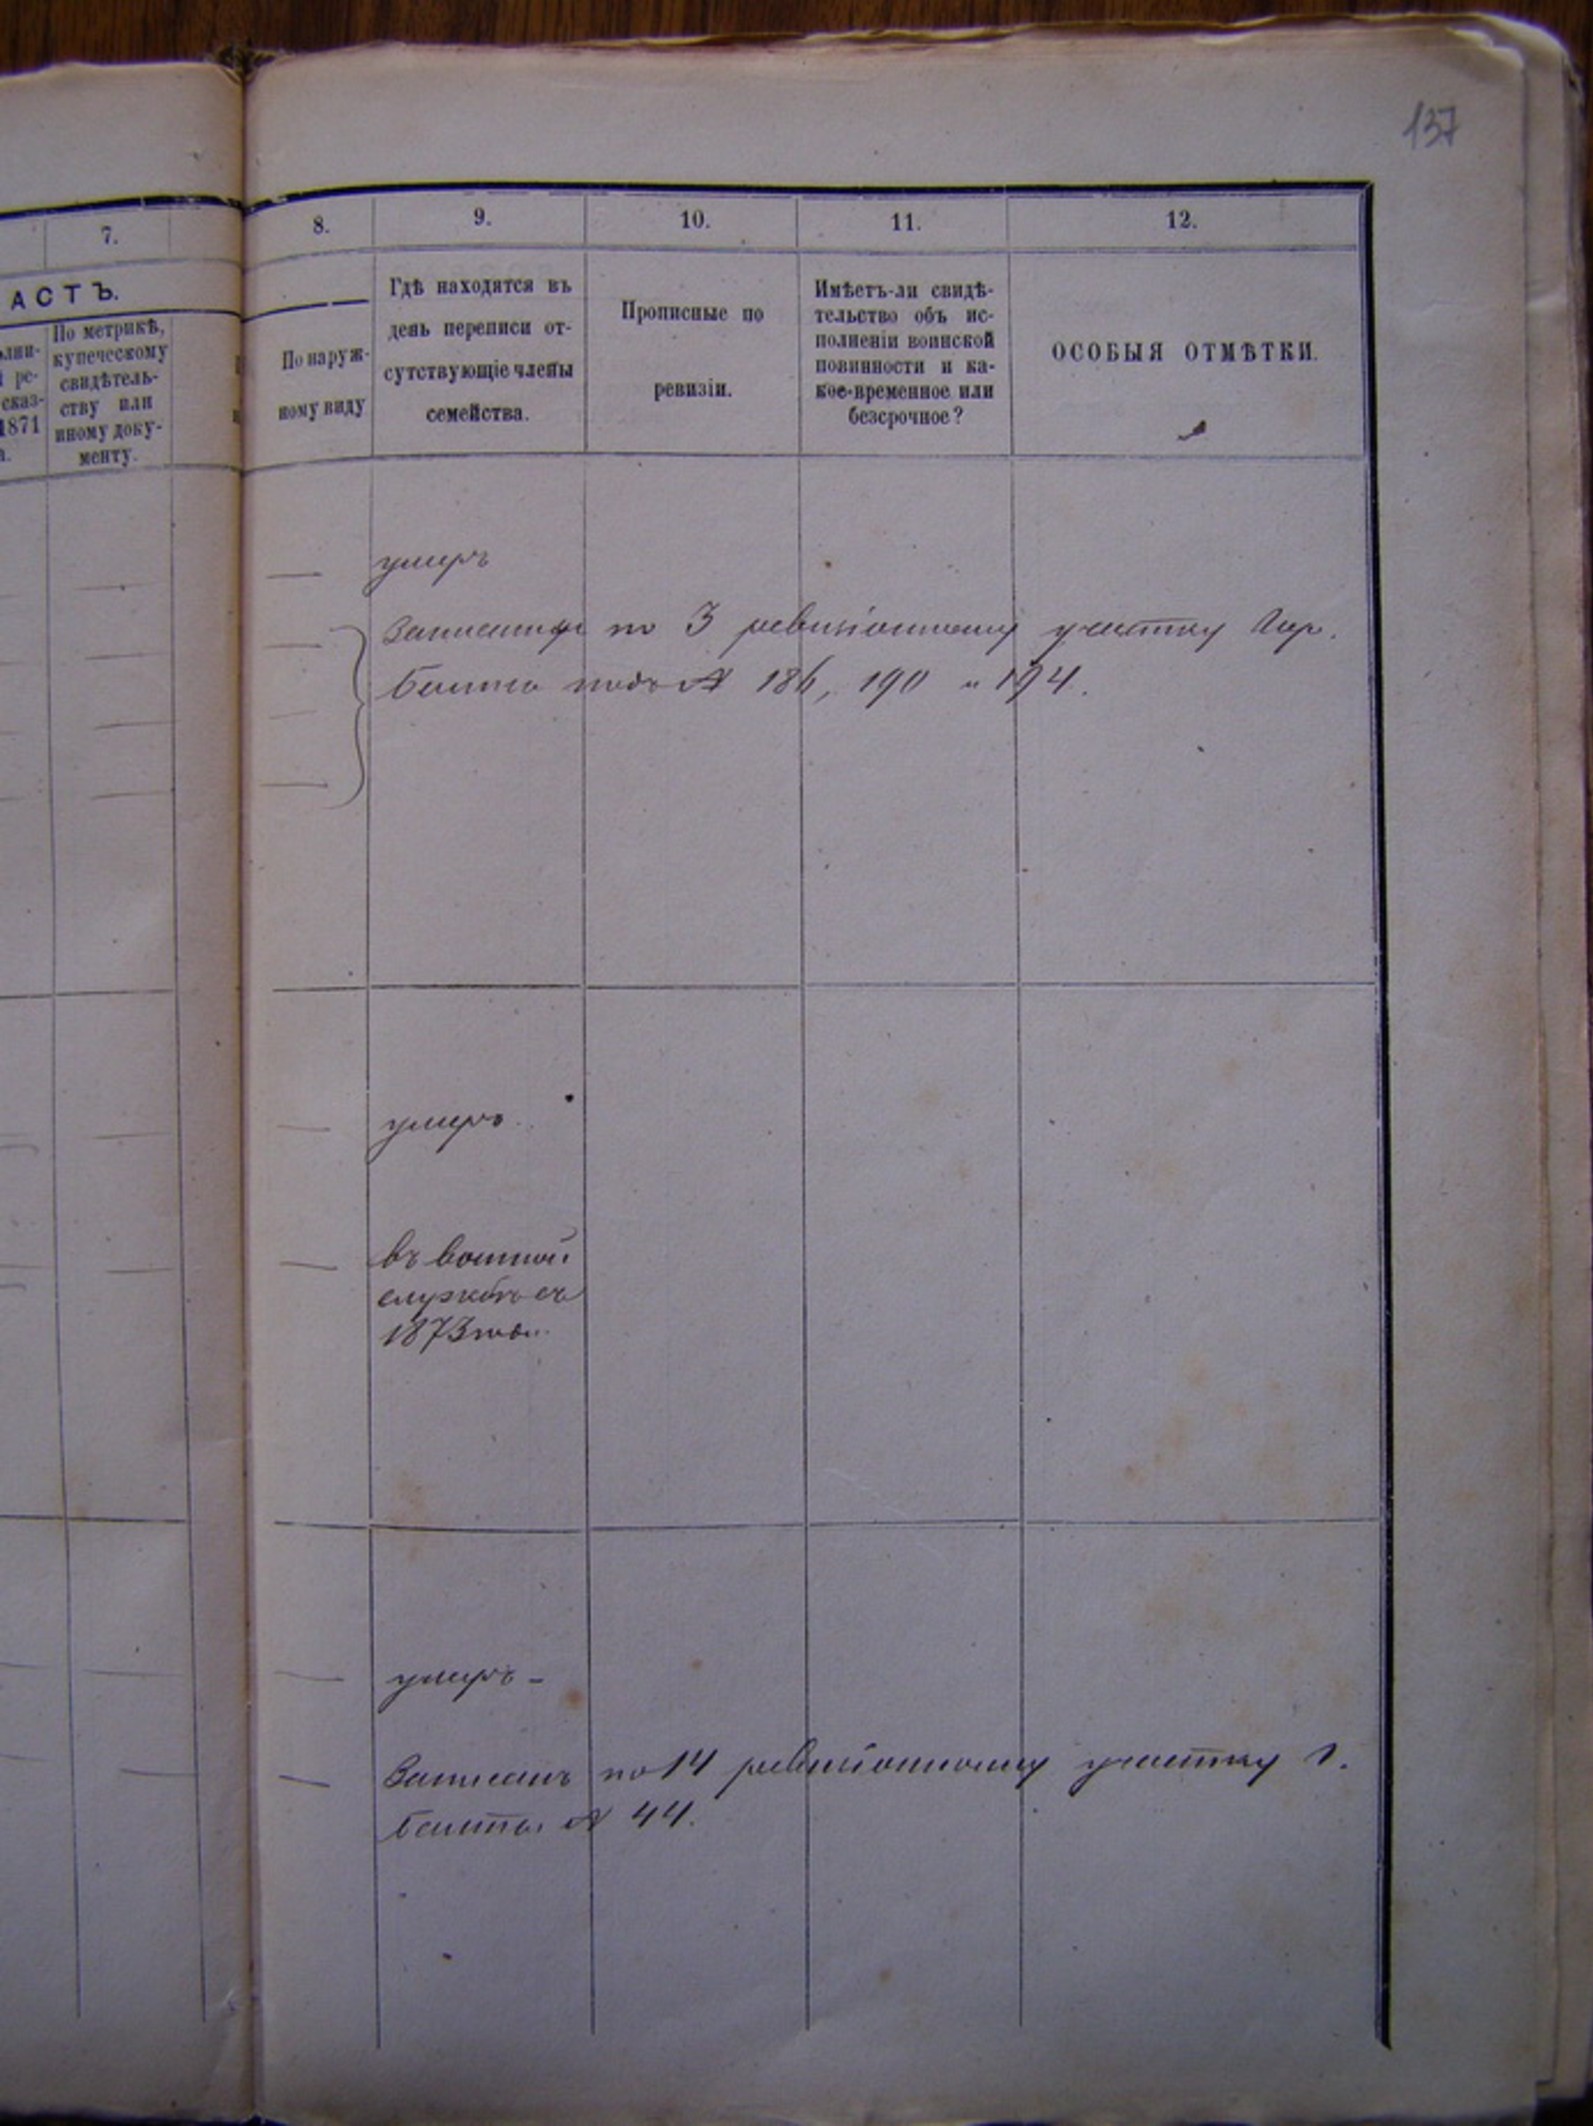 137
7.
8.
9.
10.
11.
12.
АСТЪ.
По метрикѣ,
купеческому
свидѣтель-
ству или
иному доку-
менту.
1871
По наруж-
ному виду
Гдѣ находятся въ
день переписи от-
сутствующіе члены
семейства.
Прописные по
ревизіи.
Имѣетъ-ли свидѣ-
тельство объ ис-
полненіи воинской
повинности и ка-
кое-временное или
безсрочное?
ОСОБЫЯ ОТМѢТКИ.
умеръ
Записаны по 3 ревизіонному участку Гор.
подъ № 186, 190 и 194.
умеръ
въ военной
службѣ съ
1873 года.
умеръ -
Записанъ по 14 ревизіонному участку г.
№ 44.